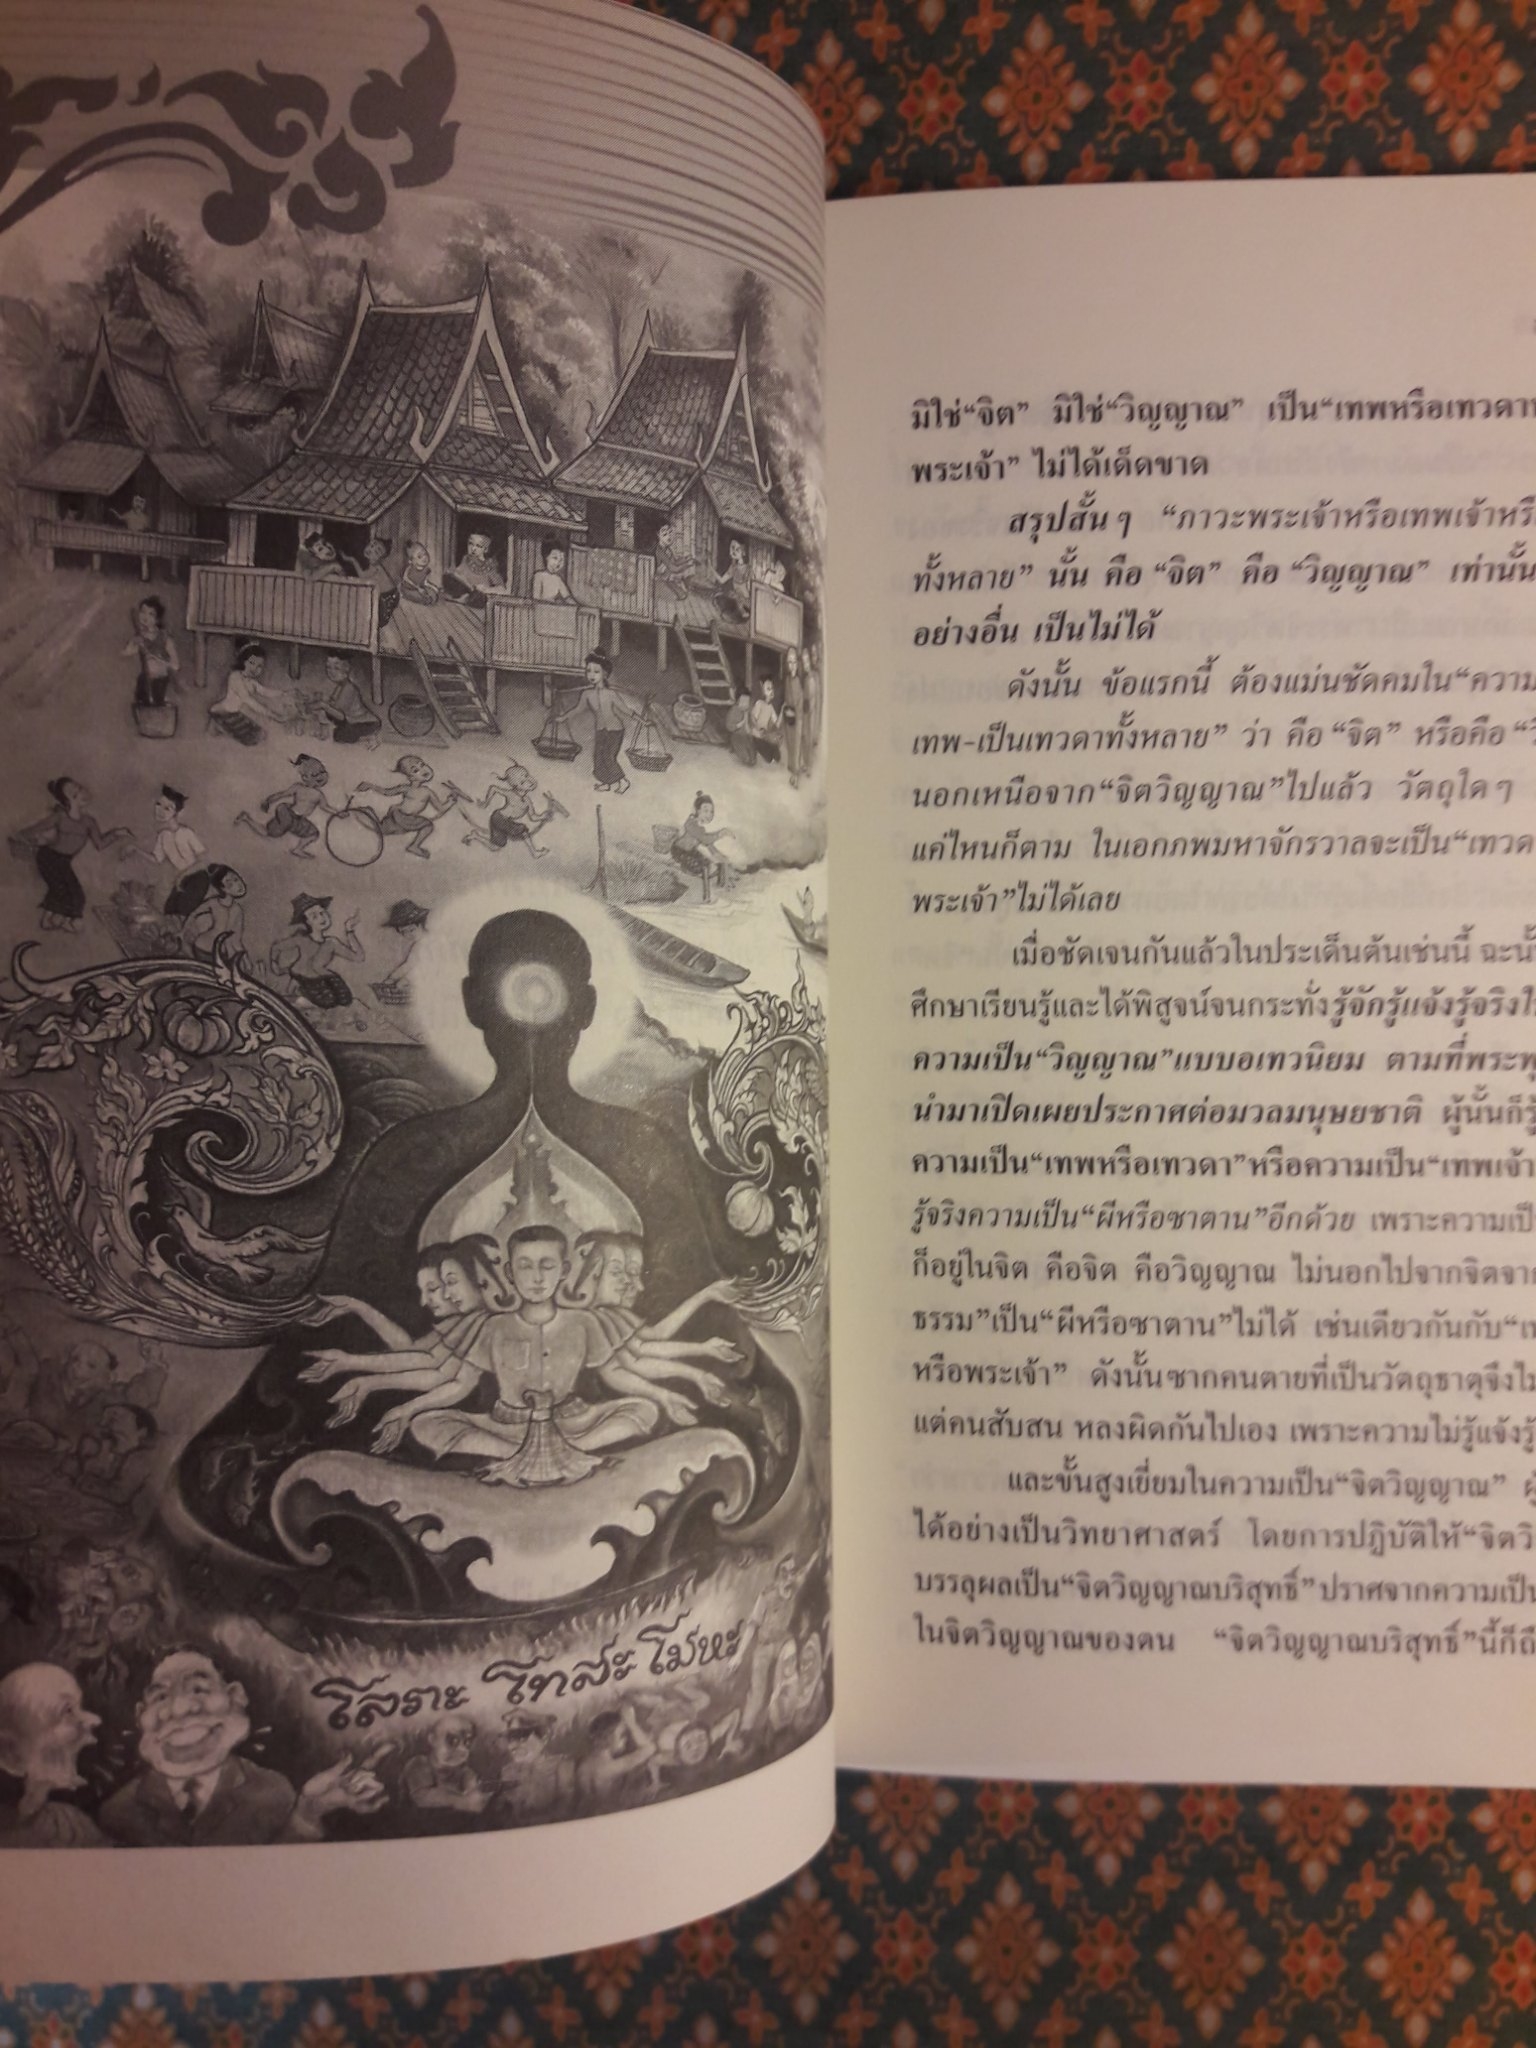 โลราะ โทสะ โมหะ
มิใช่“จิต” มิใช่“วิญญาณ” เป็น“เทพหรือเทวดา
พระเจ้า” ไม่ได้เด็ดขาด
สรุปสั้นๆ “ภาวะพระเจ้าหรือเทพเจ้าหรื
ทั้งหลาย” นั้น คือ “จิต” คือ “วิญญาณ” เท่านั้น
อย่างอื่น เป็นไม่ได้
ดังนั้น ข้อแรกนี้ ต้องแม่นชัดคมใน“ความ
เทพ-เป็นเทวดาทั้งหลาย” ว่า คือ “จิต” หรือคือ “
นอกเหนือจาก“จิตวิญญาณ”ไปแล้ว วัตถุใดๆ
แค่ไหนก็ตาม ในเอกภพมหาจักรวาลจะเป็น“เทวด
พระเจ้า”ไม่ได้เลย
เมื่อชัดเจนกันแล้วในประเด็นต้นเช่นนี้ ฉะนั้
ศึกษาเรียนรู้และได้พิสูจน์จนกระทั่งรู้จักรู้แจ้งรู้จริงใ
ความเป็น“วิญญาณ”แบบอเทวนิยม ตามที่พระพุ
นำมาเปิดเผยประกาศต่อมวลมนุษยชาติ ผู้นั้นก็รู้
ความเป็น“เทพหรือเทวดา”หรือความเป็น“เทพเจ้า
รู้จริงความเป็น“ผีหรือซาตาน”อีกด้วย เพราะความเป็
ก็อยู่ในจิต คือจิต คือวิญญาณ ไม่นอกไปจากจิตจา
ธรรม”เป็น“ผีหรือซาตาน”ไม่ได้ เช่นเดียวกันกับ“เ
หรือพระเจ้า” ดังนั้นซากคนตายที่เป็นวัตถุธาตุจึงไ
แต่คนสับสน หลงผิดกันไปเอง เพราะความไม่รู้แจ้งรู้
และขั้นสูงเยี่ยมในความเป็น“จิตวิญญาณ” ผู้
ได้อย่างเป็นวิทยาศาสตร์ โดยการปฏิบัติให้“จิตวิ
บรรลุผลเป็น“จิตวิญญาณบริสุทธิ์”ปราศจากความเป็
ในจิตวิญญาณของตน “จิตวิญญาณบริสุทธิ์”นี้ก็ถื